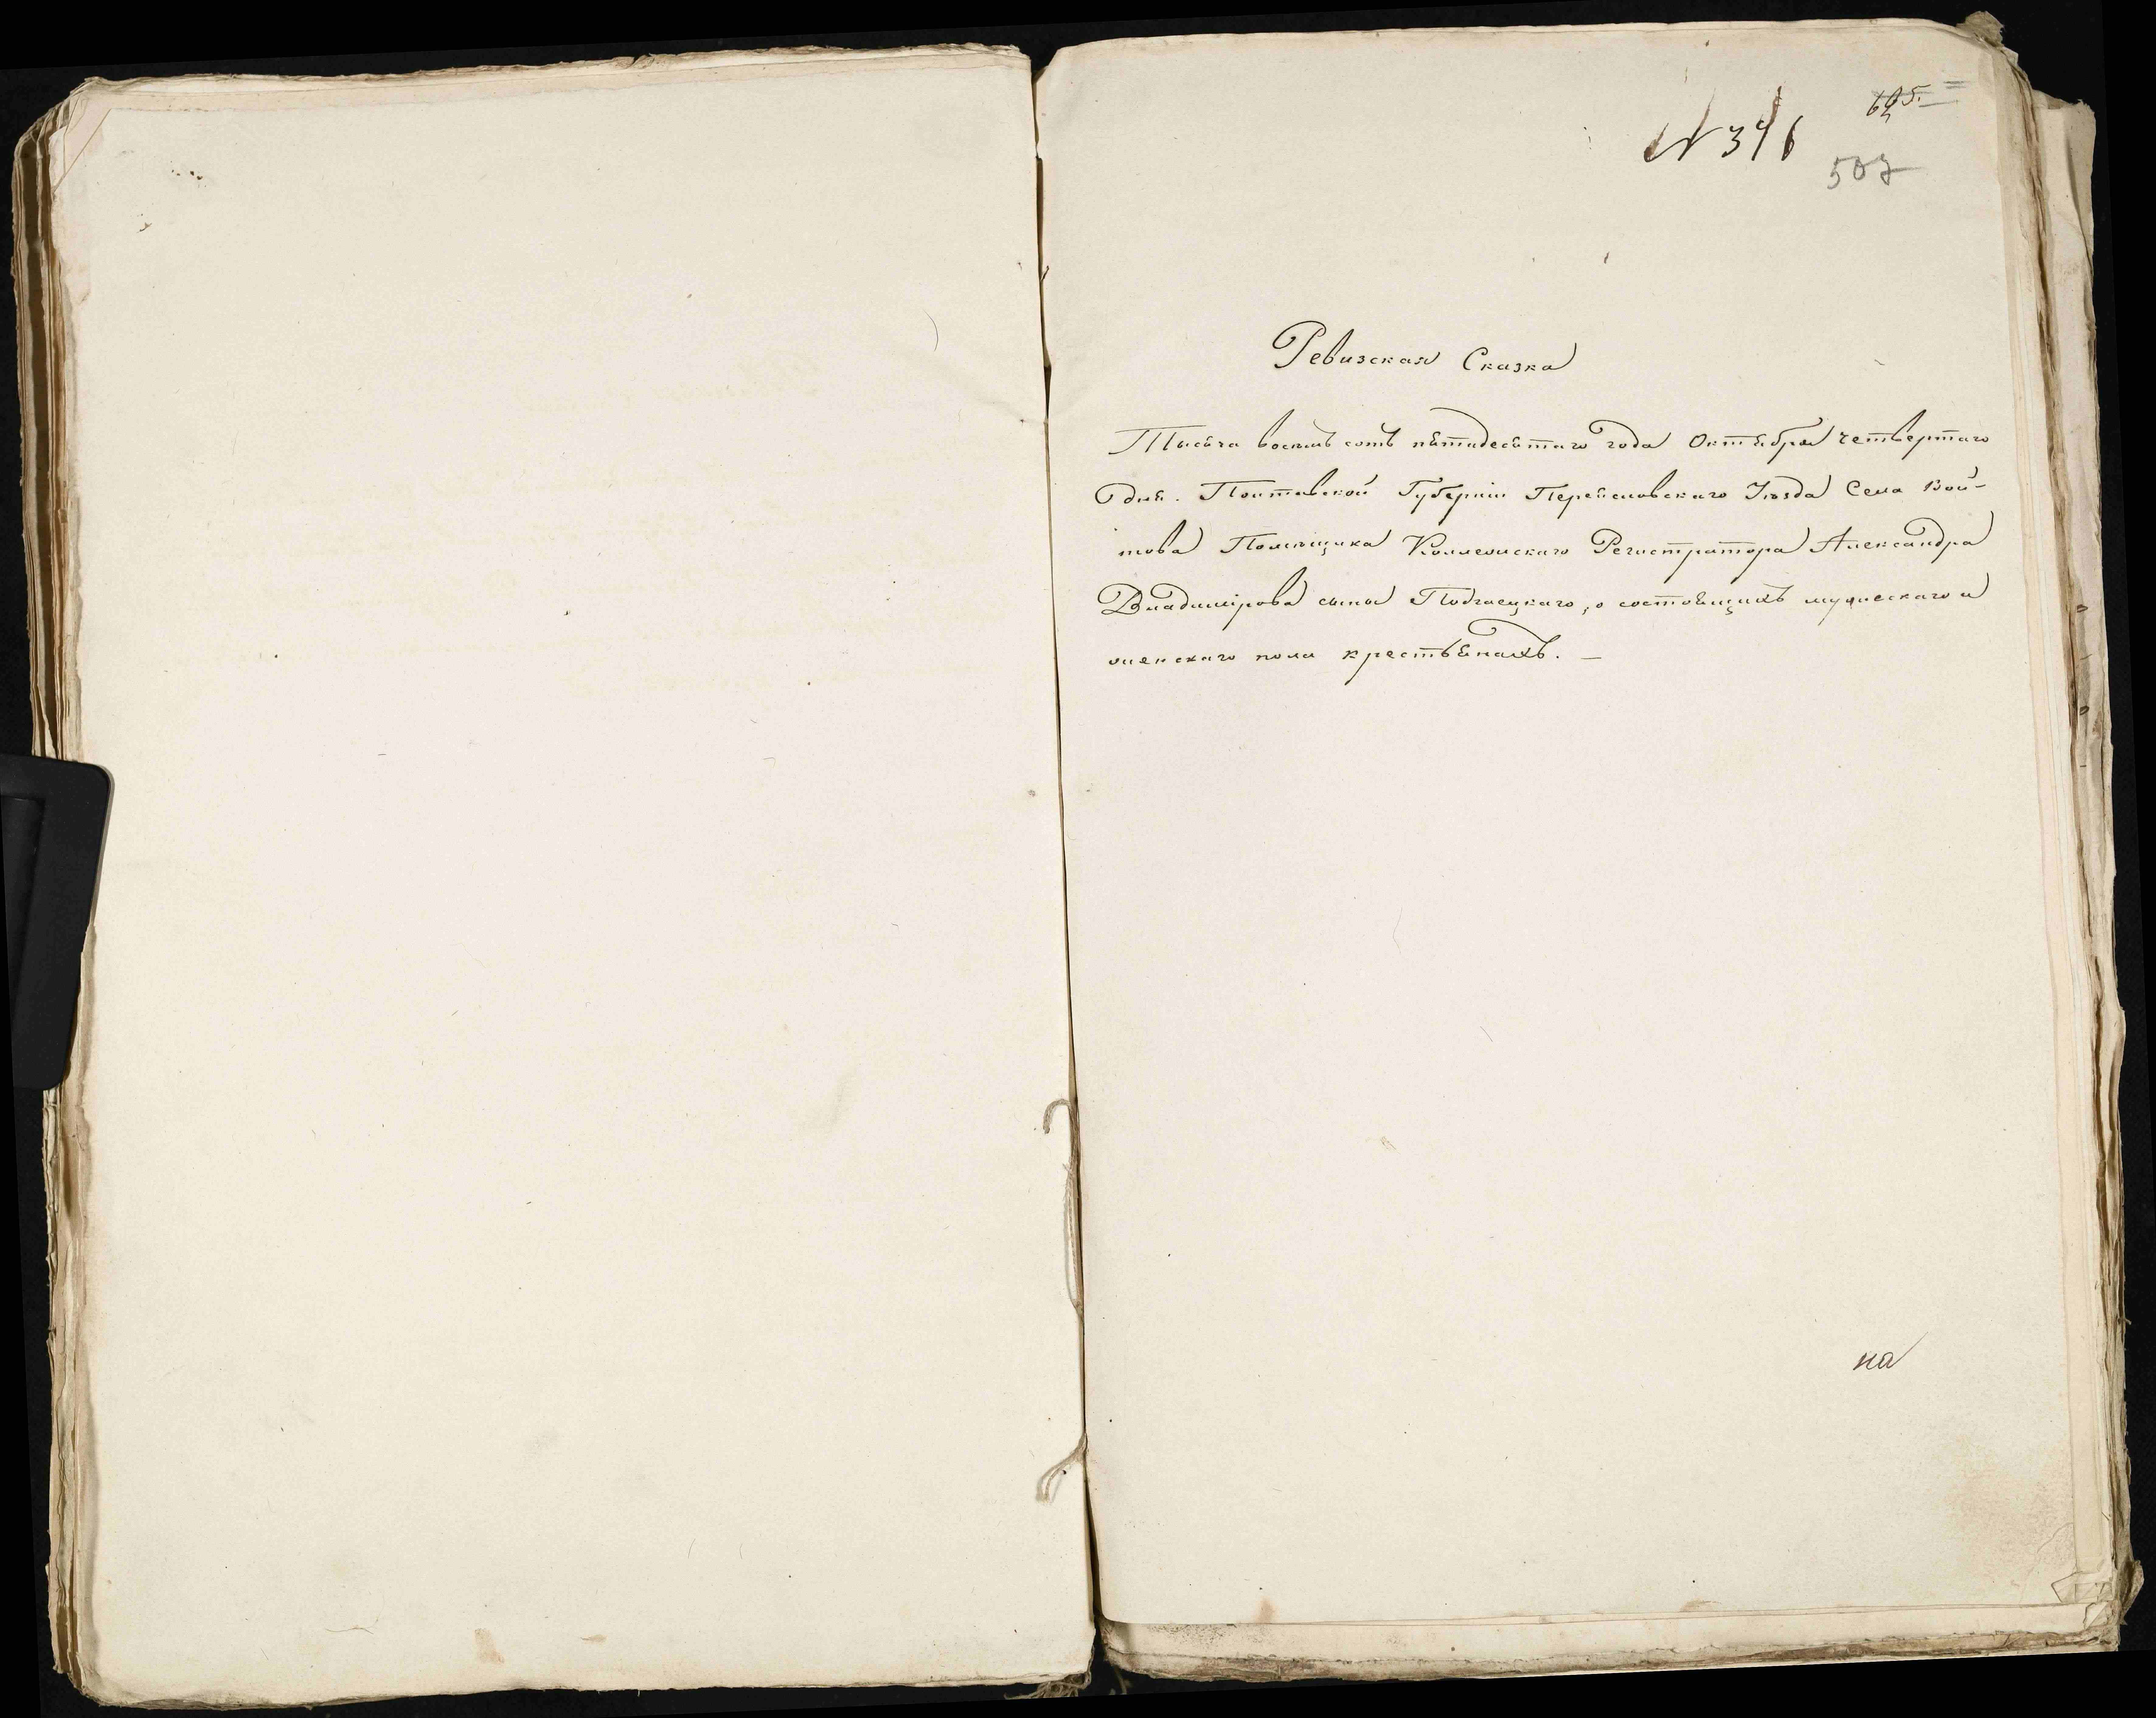 605.
N 346
507
Ревизская Сказка
Тысяча восемь сотъ пятидесятаго года Октября четвертаго
дня. Полтавской Губерніи Переяславскаго Уѣзда Села Вой-
това Помѣщика Коллежскаго Регистратора Александра
Владимірова сына Подгаецкаго, о состоящихъ мужескаго и
женскаго пола крестьянахъ. —
на